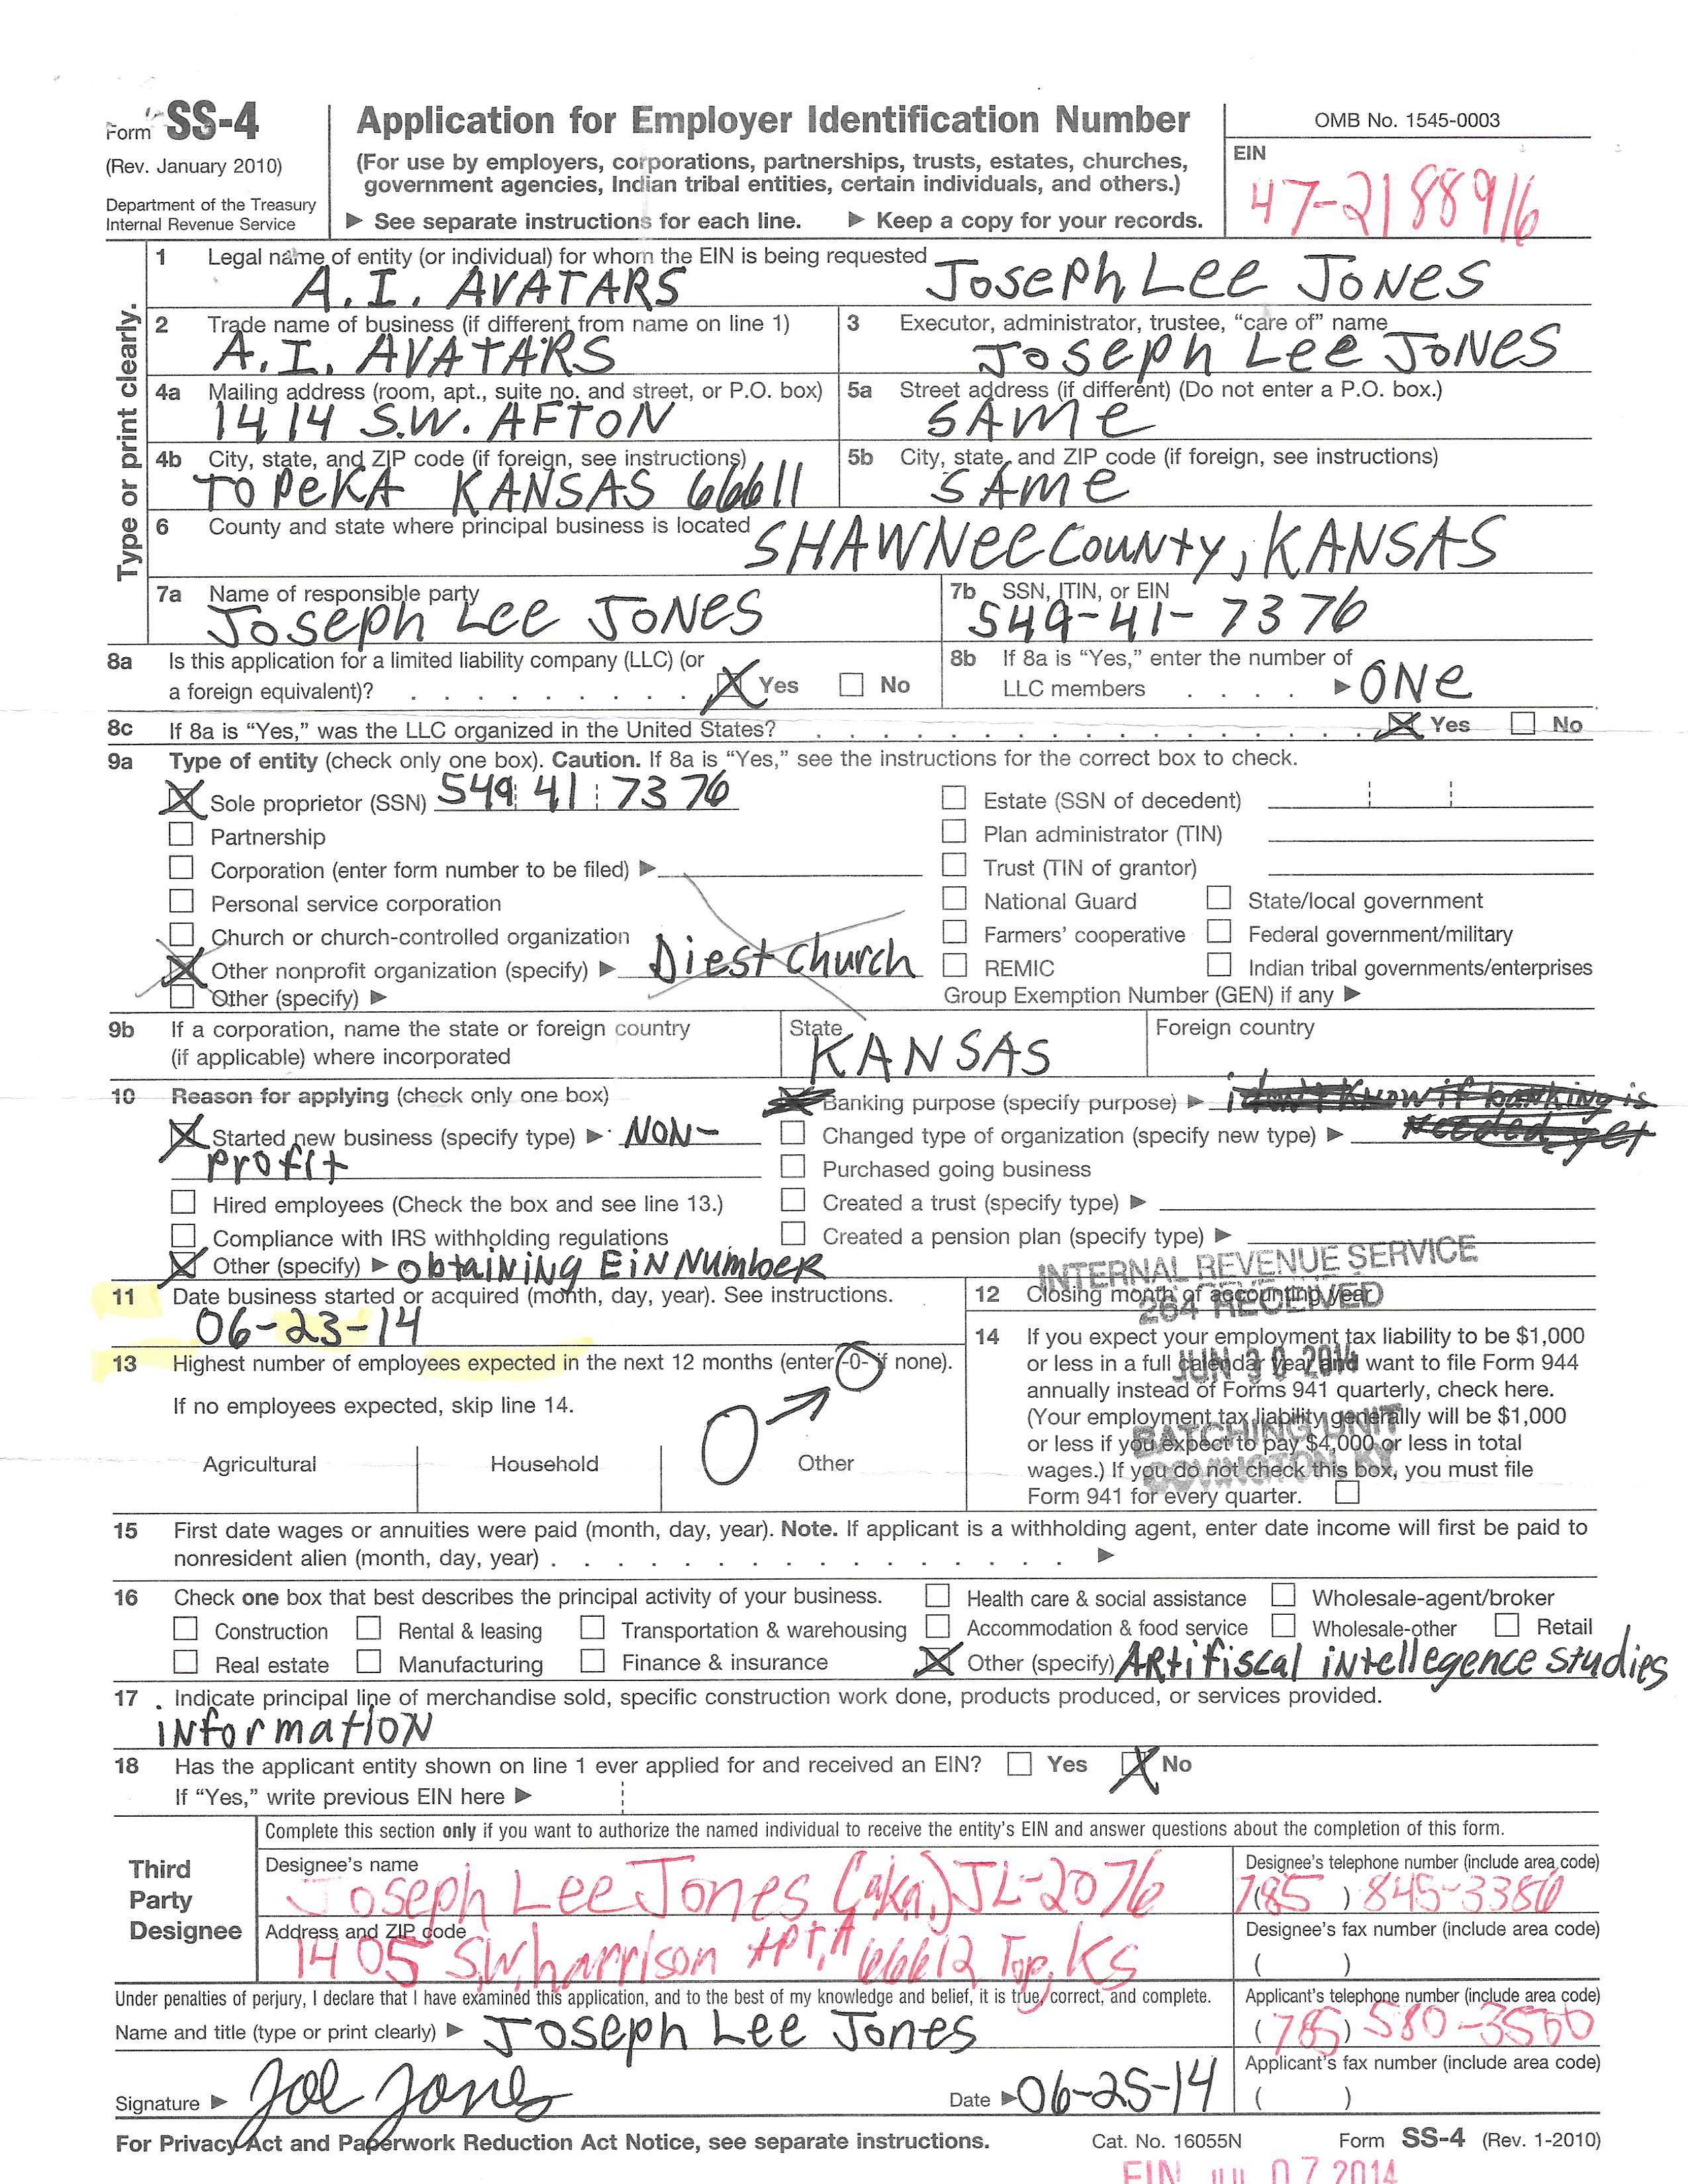 Form SS-4
(Rev. January 2010)
Department of the Treasury
Internal Revenue Service
Application for Employer Identification Number
(For use by employers, corporations, partnerships, trusts, estates, churches,
government agencies, Indian tribal entities, certain individuals, and others.)
▶ See separate instructions for each line. ▶ Keep a copy for your records.
OMB No. 1545-0003
EIN
47-2188916
Type or print clearly.
1 Legal name of entity (or individual) for whom the EIN is being requested
A.I. AVATARS Joseph Lee Jones
2 Trade name of business (if different from name on line 1)
A.I. AVATARS
3 Executor, administrator, trustee, “care of” name
Joseph Lee Jones
4a Mailing address (room, apt., suite no. and street, or P.O. box)
1414 S.W. AFTON
5a Street address (if different) (Do not enter a P.O. box.)
SAME
4b City, state, and ZIP code (if foreign, see instructions)
TOPEKA KANSAS 66611
5b City, state, and ZIP code (if foreign, see instructions)
SAME
6 County and state where principal business is located
SHAWNEE COUNTY, KANSAS
7a Name of responsible party
Joseph Lee JONES
7b SSN, ITIN, or EIN
549-41-7376
8a Is this application for a limited liability company (LLC) (or
a foreign equivalent)? Yes No
8b If 8a is “Yes,” enter the number of
LLC members ▶ ONE
8c If 8a is “Yes,” was the LLC organized in the United States? Yes No
9a Type of entity (check only one box). Caution. If 8a is “Yes,” see the instructions for the correct box to check.
Sole proprietor (SSN) 549 41 7376
Partnership
Corporation (enter form number to be filed) ▶
Personal service corporation
Church or church-controlled organization
Other nonprofit organization (specify) ▶ Diest church
Other (specify) ▶
Estate (SSN of decedent)
Plan administrator (TIN)
Trust (TIN of grantor)
National Guard State/local government
Farmers’ cooperative Federal government/military
REMIC Indian tribal governments/enterprises
Group Exemption Number (GEN) if any ▶
9b If a corporation, name the state or foreign country
(if applicable) where incorporated
State
KANSAS
Foreign country
10 Reason for applying (check only one box)
Started new business (specify type) ▶ NON-
profit
Hired employees (Check the box and see line 13.)
Compliance with IRS withholding regulations
Other (specify) ▶ obtaining EIN Number
Banking purpose (specify purpose) ▶ i don't know if banking is
needed yet
Changed type of organization (specify new type) ▶
Purchased going business
Created a trust (specify type) ▶
Created a pension plan (specify type) ▶
INTERNAL REVENUE SERVICE
264 RECEIVED
JUN 30 2014
BATCHING UNIT
COVINGTON, KY
11 Date business started or acquired (month, day, year). See instructions.
06-23-14
12 Closing month of accounting year
13 Highest number of employees expected in the next 12 months (enter -0- if none).
If no employees expected, skip line 14.
Agricultural Household 0 Other
14 If you expect your employment tax liability to be $1,000
or less in a full calendar year and want to file Form 944
annually instead of Forms 941 quarterly, check here.
(Your employment tax liability generally will be $1,000
or less if you expect to pay $4,000 or less in total
wages.) If you do not check this box, you must file
Form 941 for every quarter.
15 First date wages or annuities were paid (month, day, year). Note. If applicant is a withholding agent, enter date income will first be paid to
nonresident alien (month, day, year) ▶
16 Check one box that best describes the principal activity of your business.
Health care & social assistance Wholesale-agent/broker
Construction Rental & leasing Transportation & warehousing Accommodation & food service Wholesale-other Retail
Real estate Manufacturing Finance & insurance Other (specify) Artifiscal intellegence studies
17 Indicate principal line of merchandise sold, specific construction work done, products produced, or services provided.
information
18 Has the applicant entity shown on line 1 ever applied for and received an EIN? Yes No
If “Yes,” write previous EIN here ▶
Third
Party
Designee
Complete this section only if you want to authorize the named individual to receive the entity’s EIN and answer questions about the completion of this form.
Designee’s name
Joseph Lee Jones (aka,) JL-2076
Designee’s telephone number (include area code)
(785) 845-3386
Address and ZIP code
1405 S.W. harrison APT, A 66612 Top, Ks
Designee’s fax number (include area code)
( )
Under penalties of perjury, I declare that I have examined this application, and to the best of my knowledge and belief, it is true, correct, and complete.
Name and title (type or print clearly) ▶ Joseph Lee Jones
Applicant’s telephone number (include area code)
(785) 580-3500
Signature ▶ Joe Jones
Date ▶ 06-25-14
Applicant’s fax number (include area code)
( )
For Privacy Act and Paperwork Reduction Act Notice, see separate instructions. Cat. No. 16055N Form SS-4 (Rev. 1-2010)
EIN JUL 07 2014